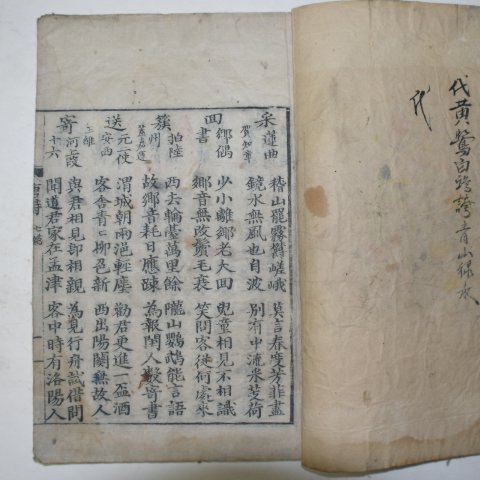 代黃鶯白鷺誇青山綠水
采蓮曲
賀知章
稽山罷霧鬱嵯峨
鏡水無風也自波
莫言春度芳菲盡
別有中流采芰荷
回鄉偶書
少小離鄉老大回
鄉音無改鬢毛衰
兒童相見不相識
笑問客從何處來
西去輪臺萬里餘
故鄉音耗日應踈
隴山鸚鵡能言語
爲報閨人數寄書
送元二使安西
王維
渭城朝雨浥輕塵
客舍青々柳色新
勸君更進一盃酒
西出陽關無故人
寄河
十六
與君相見即相親
聞道君家在孟津
爲見行舟試借問
客中時有洛陽人
唐詩
七絶